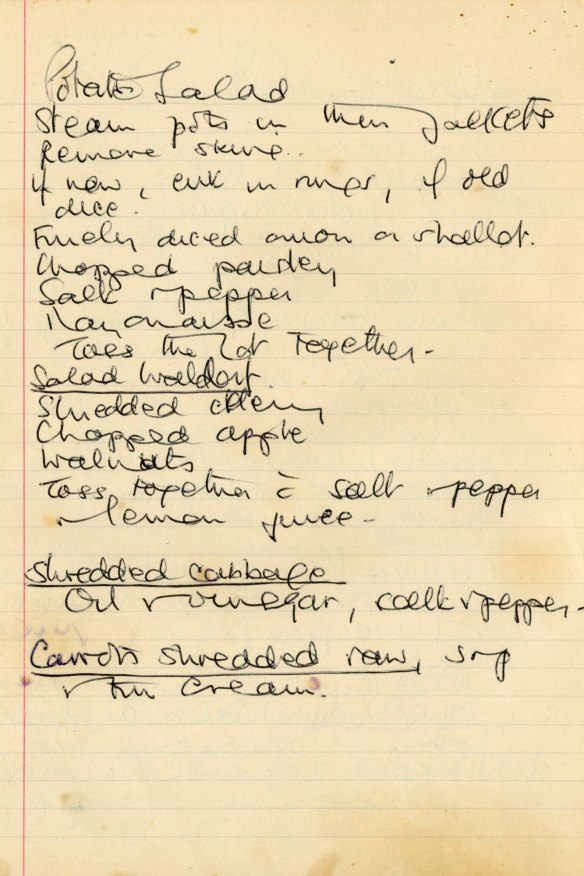 Potato Salad
Steam pots in their jackets
Remove skins.
If new, cut in rings, if old
dice.
Finely diced onion or shallot.
Chopped parsley
Salt & pepper
Mayonnaise
Toss the lot together-
Salad Waldorf.
Shredded celery
Chopped apple
Walnuts
Toss together c̄ salt & pepper
& lemon juice-
Shredded cabbage
Oil & vinegar, salt & pepper-
Carrots shredded raw,
& cream.